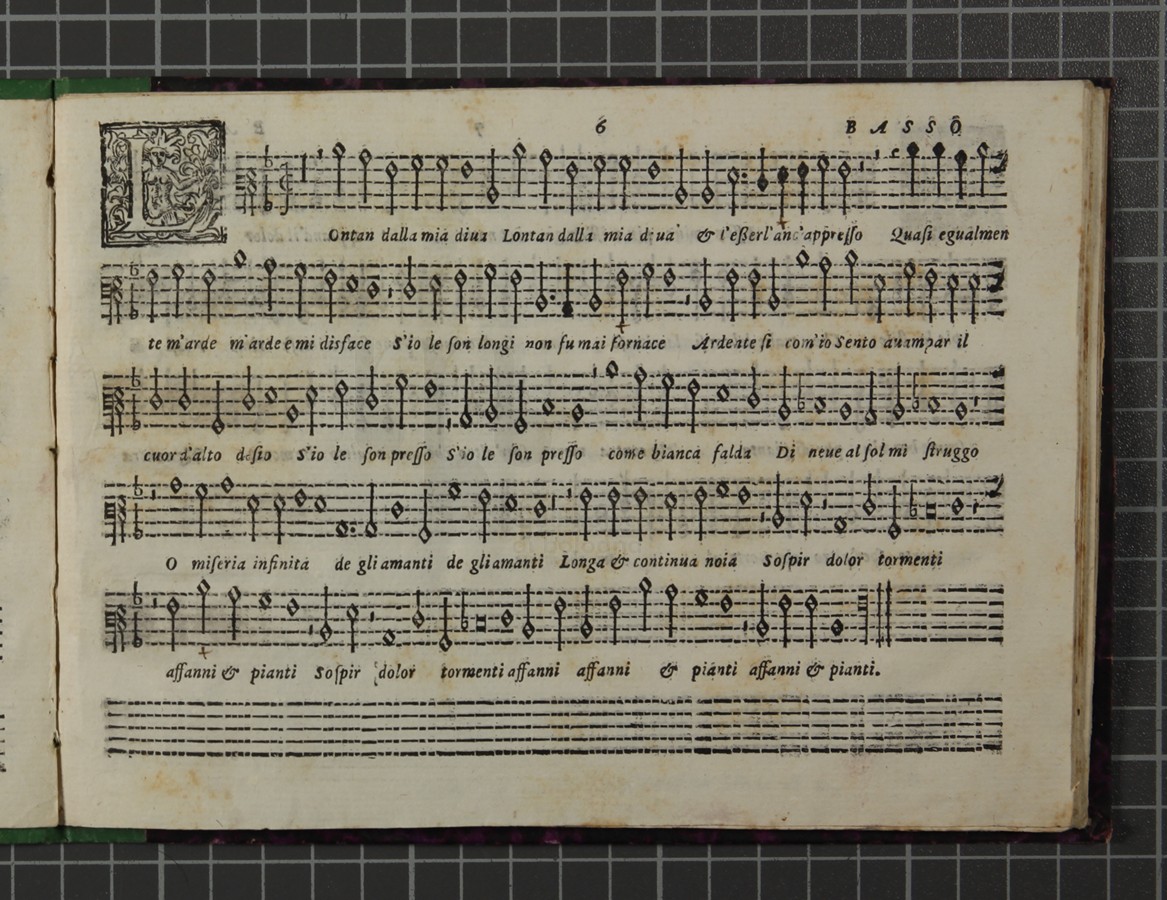 6 BASSO
L
Ontan dalla mia diua Lontan dalla mia d:ua & l'eßerl'anc'appreſſo Quaſi egualmen
te m'arde m'arde e mi disface S'io le ſon longi non fu mai fornace Ardente ſi com'io Sento auampar il
cuor d'alto deſio S'io le ſon preſſo S'io le ſon preſſo come bianca falda Di neue al ſol mi ſtruggo
O miſeria infinita de gli amanti de gli amanti Longa & continua noia Soſpir dolor tormenti
affanni & pianti Soſpir dolor tormenti affanni affanni & pianti affanni & pianti.